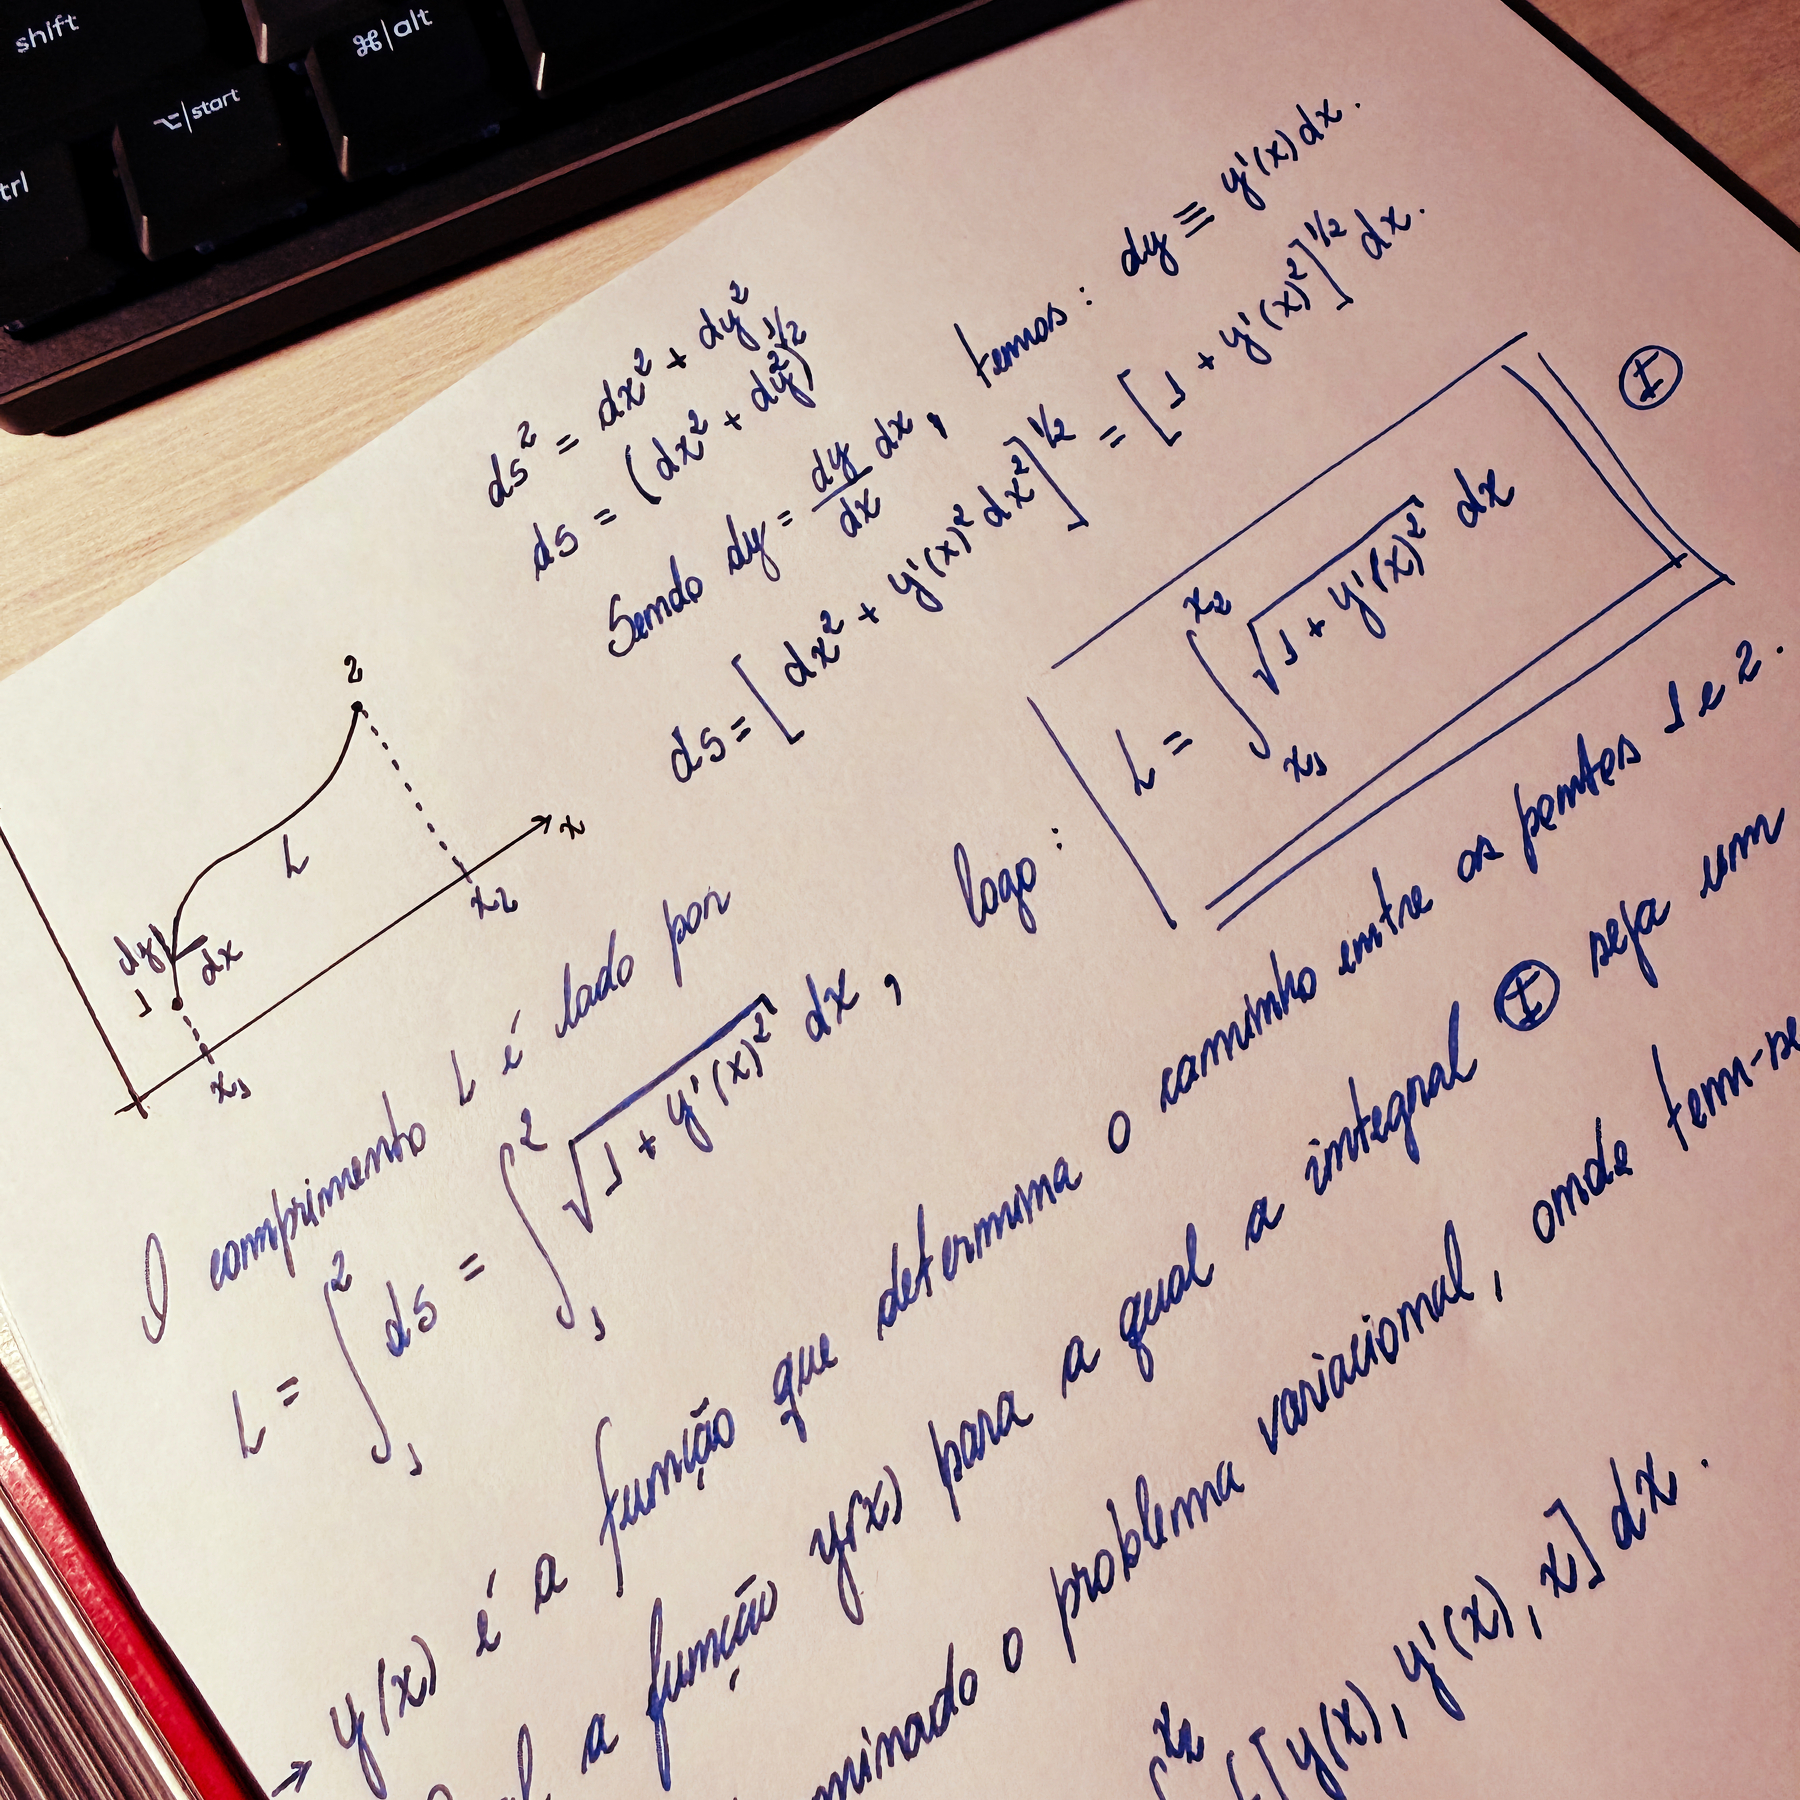 shift
⌘|alt
⌥|start
trl
ds² = dx² + dy²
ds = (dx² + dy²)^1/2
Sendo dy = dy/dx dx, temos: dy ≡ y'(x) dx.
ds = [dx² + y'(x)² dx²]^1/2 = [1 + y'(x)²]^1/2 dx.
2
L
dy
dx
1
x₁
x₂
x
O comprimento L é dado por
L = ∫₁² ds = ∫₁² √(1 + y'(x)²) dx,
logo: L = ∫ₓ₁ˣ² √(1 + y'(x)²) dx Ⓘ
→ y(x) é a função que determina o caminho entre os pontos 1 e 2.
a função y(x) para a qual a integral Ⓘ seja um
minado o problema variacional, onde tem-se
x₂
[y(x), y'(x), x] dx.